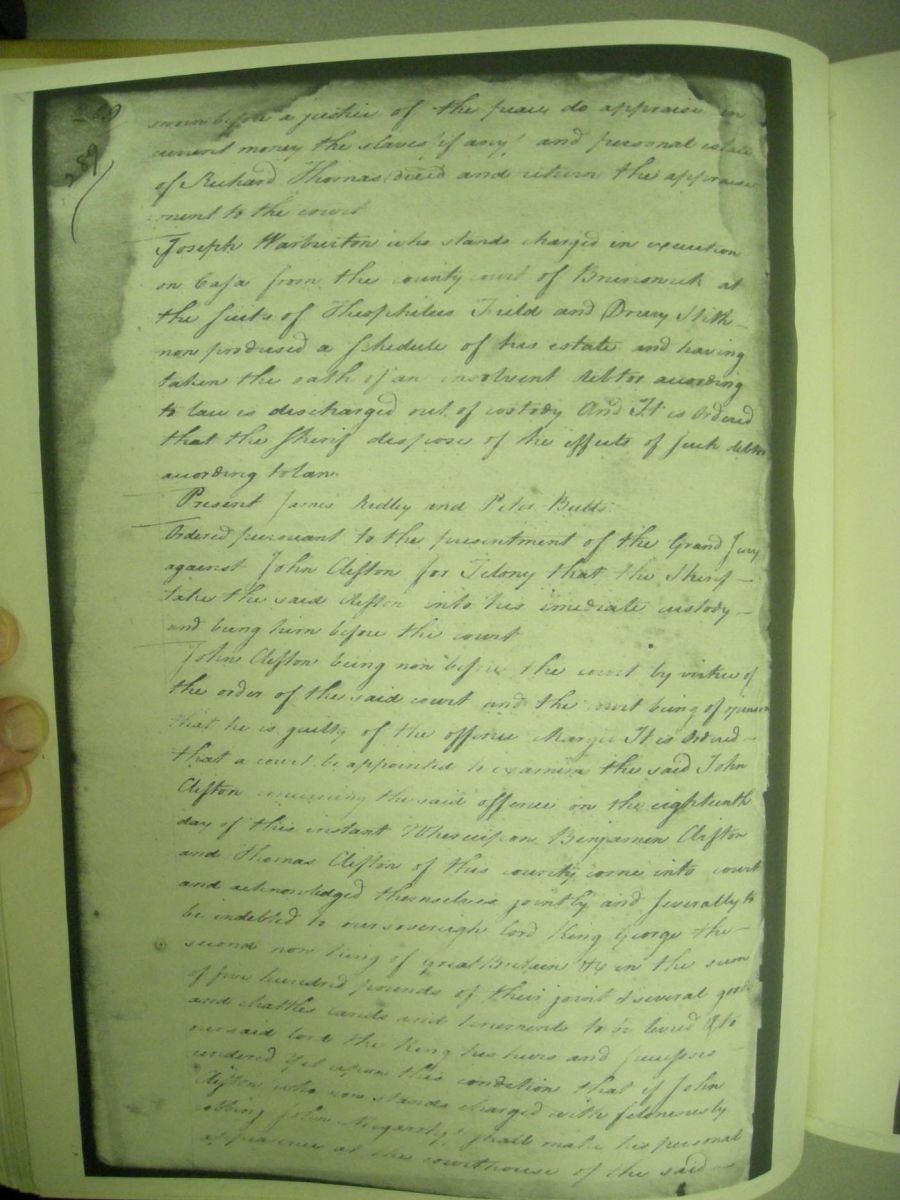 269
289
sworn before a justice of the peace do appraise in
current money the slaves (if any) and personal estate
of Richard Thomas deced and return the appraise
ment to the court
Joseph Warburton who stands charged in execution
on Casa from the county court of Brunswick at
the suits of Theophilus Feild and Drury Stith
now produsid a schedule of his estate and having
taken the oath of an insolvent debtor according
to law is discharged out of custody And It is Ordered
that the Sherif dispose of the effects of such debtor
according to law
Present James Ridley and Peter Butts
Ordered pursuant to the presentment of the Grand Jury
against John Clifton for Felony that the Sherif
take the said Clifton into his imediate custody
and bring him before the court
John Clifton being now before the court by virtue of
the order of the said court and the court being of opinion
that he is guilty of the offence charged It is Ordered
that a court be appointed to examin the said John
Clifton concerning the said offence on the eighteenth
day of this instant Whereupon Benjamin Clifton
and Thomas Clifton of this county come into court
and acknowledged themselves jointly and severally to
be indebted to our sovereign lord King George the
second now king of great Britain &c in the sum
of five hundred pounds of their joint & several goods
and chattles lands and tenements to be levied & to
our said lord the King his heirs and successors
rendered Yet upon this condition that if John
Clifton who now stands charged with feloniously
John shall make his personal
appearance at the courthouse of the said